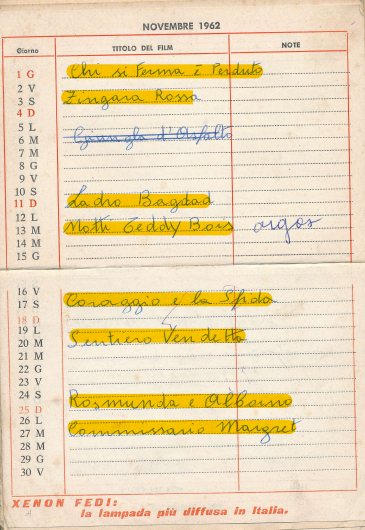 NOVEMBRE 1962
Giorno TITOLO DEL FILM NOTE
1 G Chi si Ferma è Perduto
2 V
3 S Zingara Rossa
4 D
5 L
6 M Giungla d'Asfalto
7 M
8 G
9 V
10 S
11 D Ladro Bagdad
12 L
13 M Notti Teddy Bois argos
14 M
15 G
16 V
17 S Coraggio e la Sfida
18 D
19 L
20 M Sentiero Vendetta
21 M
22 G
23 V
24 S Rosmunda e Alboino
25 D
26 L
27 M Commissario Maigret
28 M
29 G
30 V
XENON FEDI:
la lampada più diffusa in Italia.